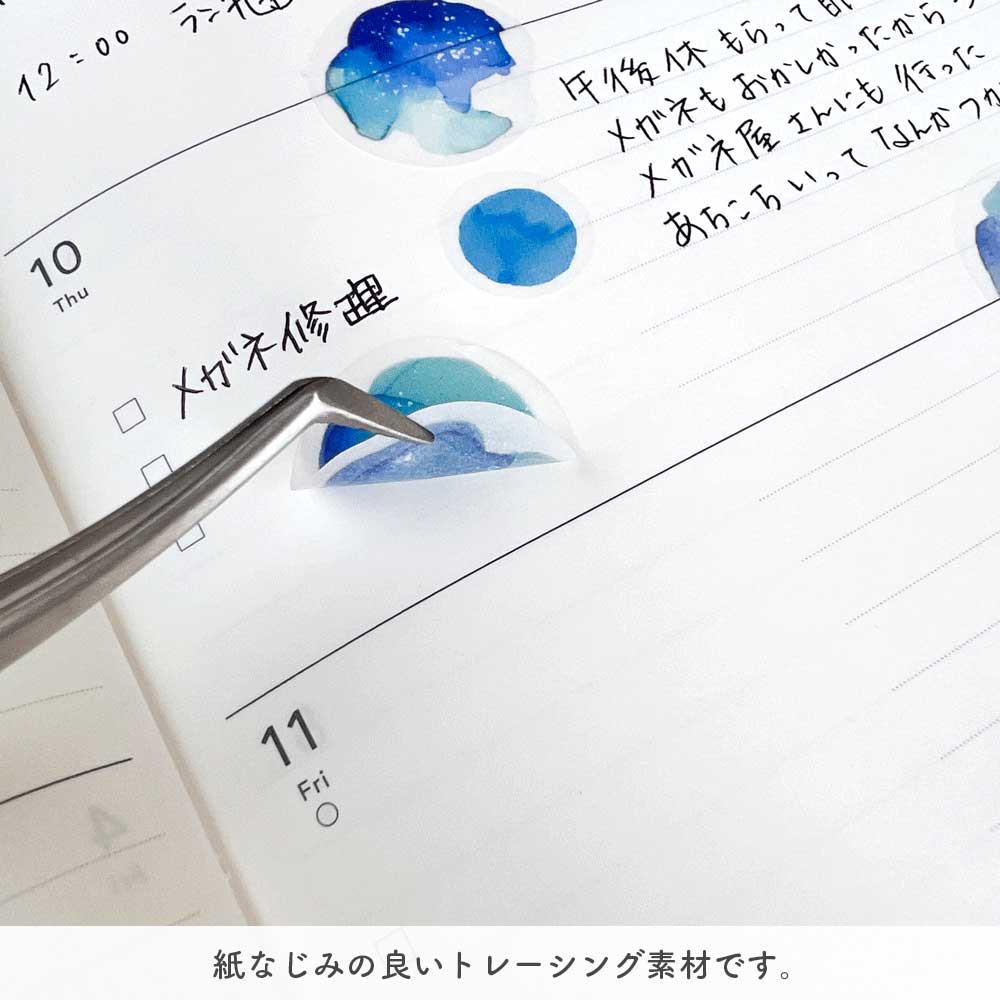 12:00 ランチ
午後休 もらって
メガネも おかしかったから
メガネ屋 さんにも 行った
あちこち いって なんか
10
Thu
メガネ修理
11
Fri
紙なじみの良いトレーシング素材です。